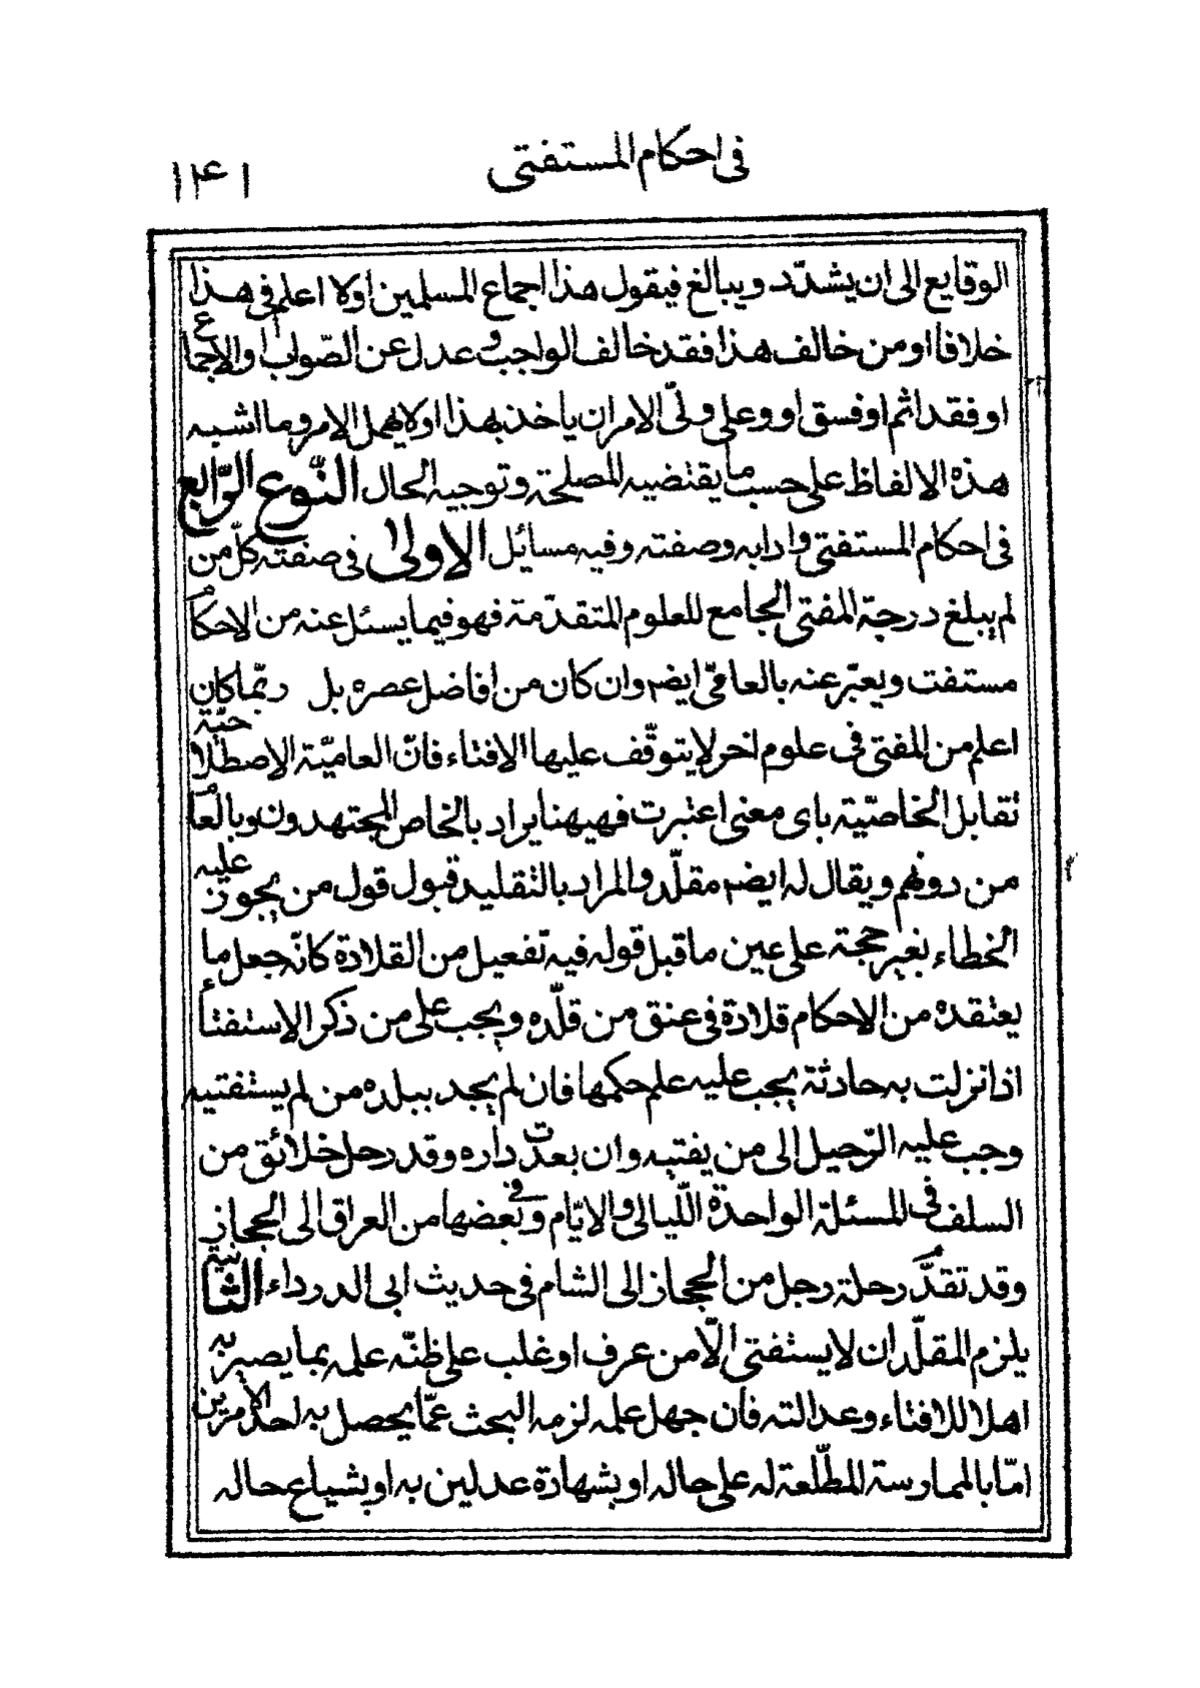 في احكام المستفتي
١٤١
الوقايع الى ان يشدّد ويبالغ فيقول هذا اجماع المسلمين اولا اعلم في هذا
خلافا او من خالف هذا فقد خالف الواجب وعدل عن الصّواب او الاجماع
او فقد اثم او فسق او وعلى وليّ الامر ان ياخذ بهذا او لا يهمل الامر وما اشبه
هذه الالفاظ على حسب ما يقتضيه المصلحة وتوجبه الحال النّوع الرّابع
في احكام المستفتي وادابه وصفته وفيه مسائل الاولى في صفته كلّ من
لم يبلغ درجة المفتي الجامع للعلوم المتقدّمة فهو فيما يسئل عنه من الاحكام
مستفت ويعبّر عنه بالعامّي ايضا وان كان من افاضل عصره بل ربّما كان
اعلم من المفتي في علوم اخر لا يتوقّف عليها الافتاء فانّ العاميّة الاصطلاحيّة
تقابل الخاصّيّة باى معنى اعتبرت فهيهنا يراد بالخاص المجتهدون وبالعام
من دونهم ويقال له ايضا مقلّد والمراد بالتقليد قبول قول من يجوز عليه
الخطاء بغير حجة على عين ما قبل قوله فيه تفعيل من القلادة كانّه جعل ما
يعتقده من الاحكام قلادة في عنق من قلّده ويجب على من ذكر الاستفتاء
اذا نزلت به حادثة يجب عليه علم حكمها فان لم يجد ببلده من لم يستفتيه
وجب عليه الرّحيل الى من يفتيه وان بعدت داره وقد رحل خلائق من
السلف في المسئلة الواحدة اللّيالي والايّام وفي بعضها من العراق الى الحجاز
وقد تقدّم رحلة رجل من الحجاز الى الشام في حديث ابي الدرداء الثّانية
يلزم المقلّد ان لا يستفتي الّا من عرف او غلب على ظنّه علمه بما يصير به
اهلا للافتاء وعدالته فان جهل علمه لزمه البحث عمّا يحصل به احد الامرين
امّا بالممارسة المطّلعة له على حاله او بشهادة عدلين به او بشياع حاله